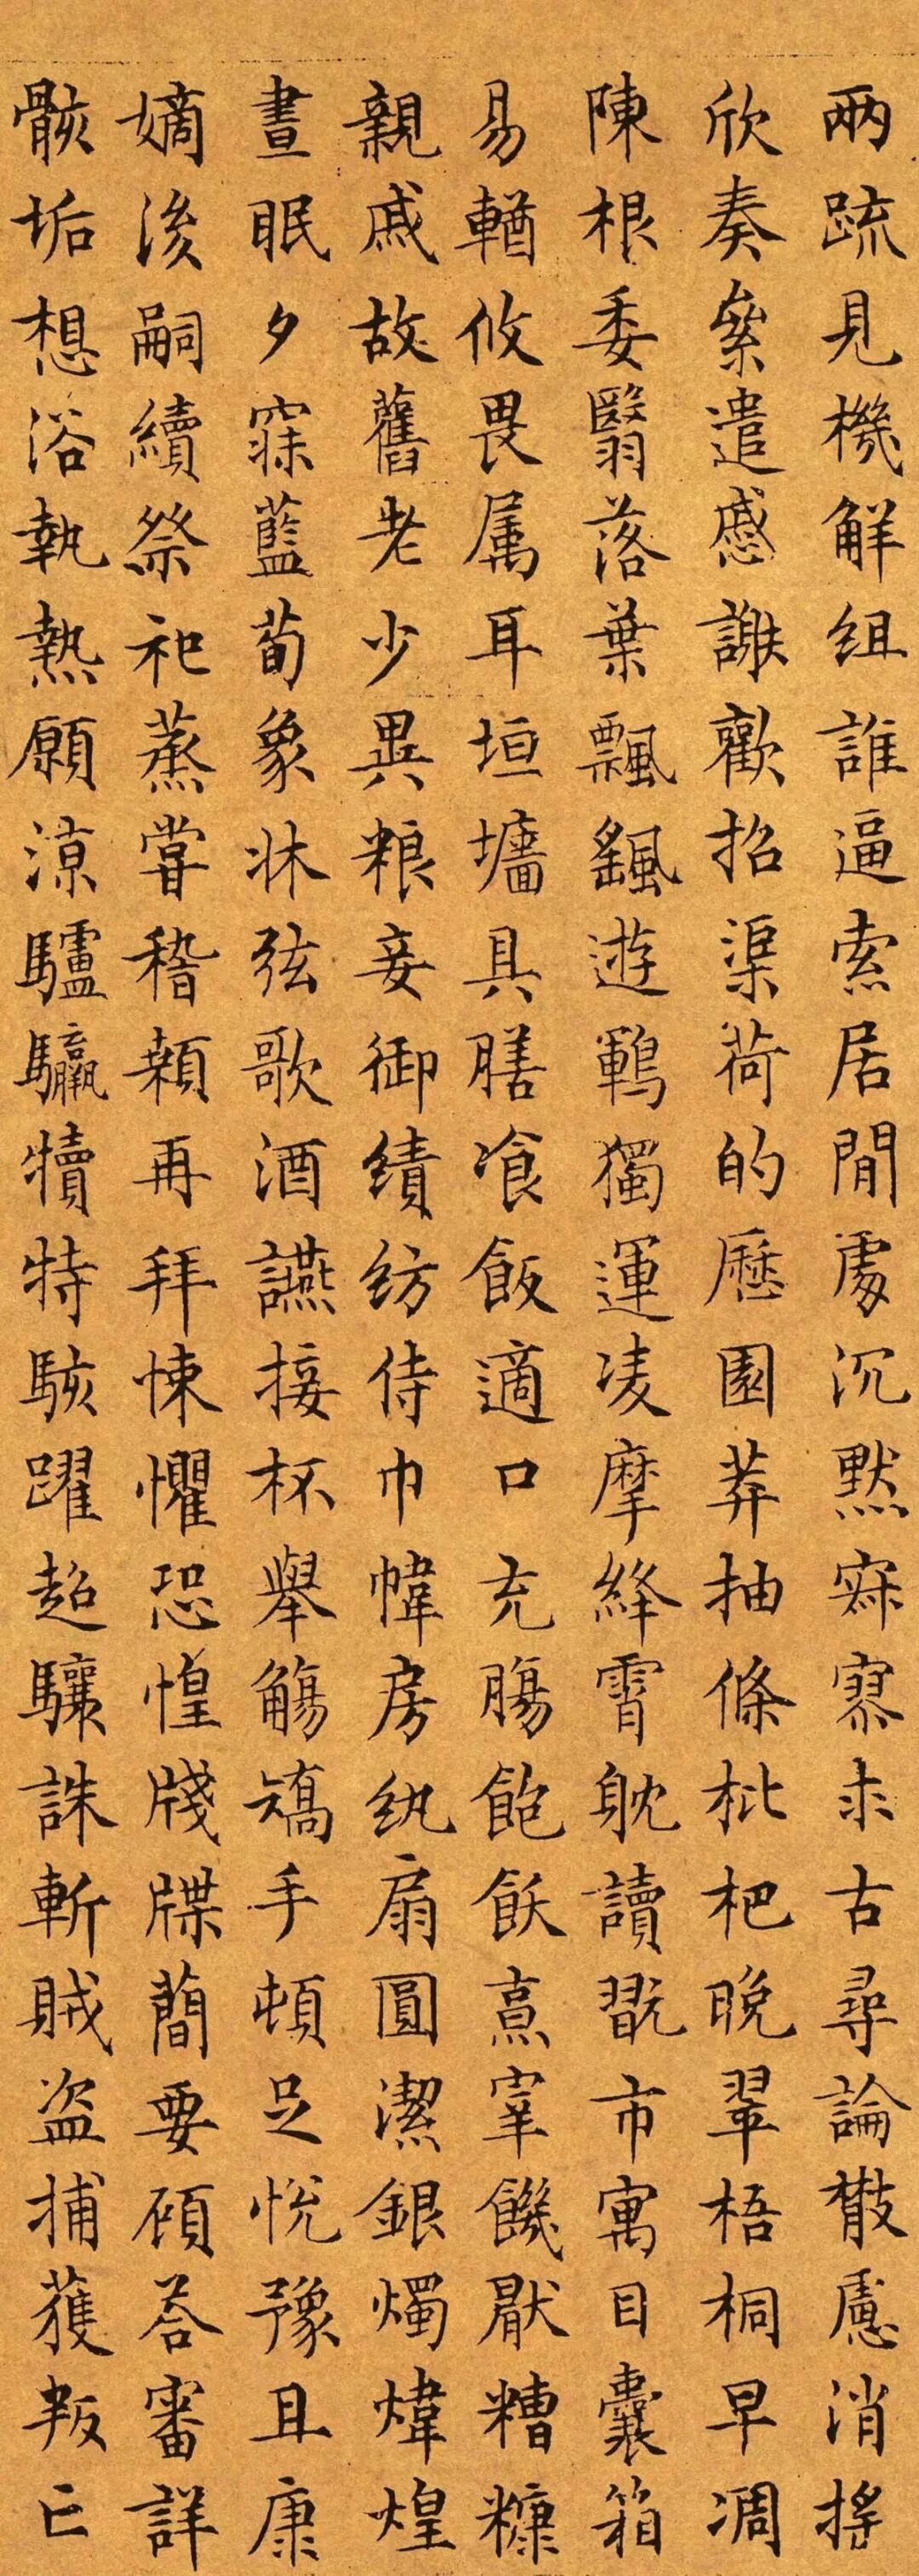 兩疏見機解组誰逼索居閒處沉默寂寥求古尋論散慮消摇
欣奏絫遣慼謝歡招渠荷的歷園莽抽條枇杷晚翠梧桐早凋
陳根委翳落葉飄颻遊鵾獨運凌摩絳霄躭讀翫市寓目囊箱
易輶攸畏属耳垣墻具膳飡飯適口充腸飽飫烹宰饑厭糟糠
親戚故舊老少異粮妾御绩纺侍巾帷房纨扇圓潔銀燭煒煌
晝眠夕寐藍荀象牀弦歌酒讌接杯舉觴矯手頓足悅豫且康
嫡後嗣續祭祀蒸嘗稽顙再拜悚懼恐惶牋牒蕑要顧荅審詳
骸垢想浴執熱願涼驢騾犢特駭躍超驤誅斬賊盗捕獲叛亡